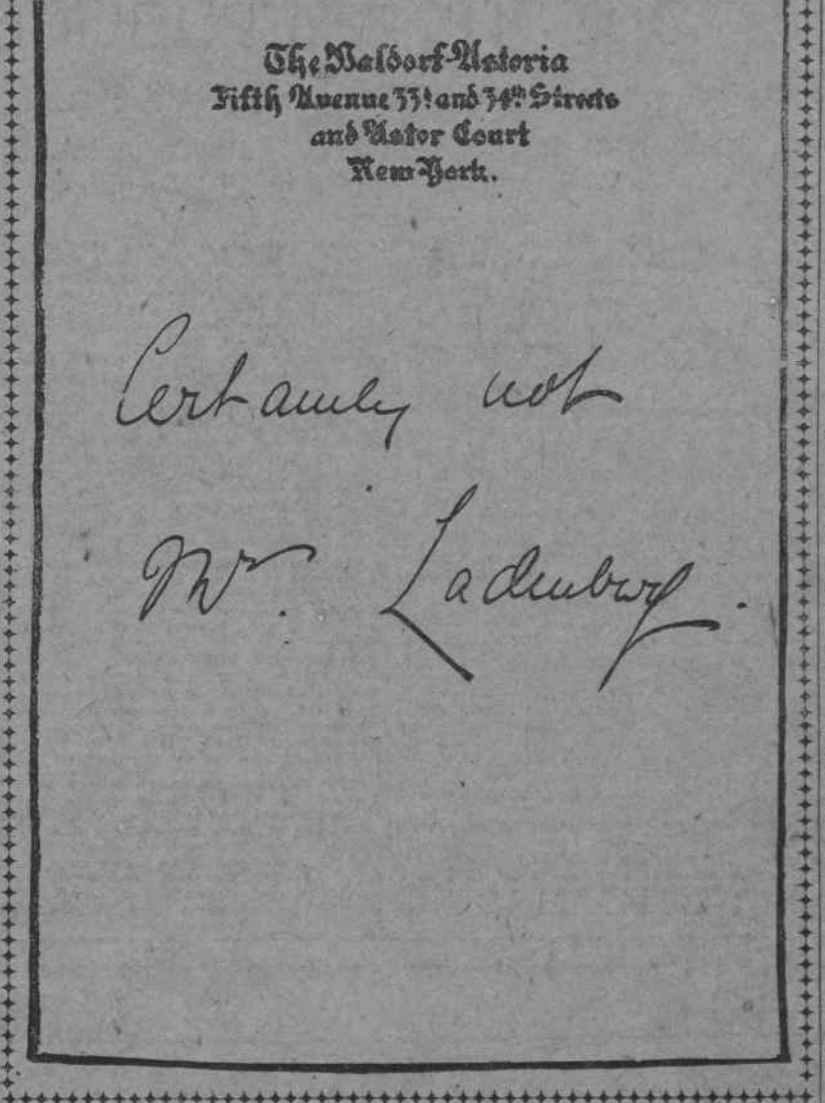 The Waldorf-Astoria
Fifth Avenue 33d and 34th Streets
and Astor Court
New-York.
Certainly not
Mrs. Ladenburg.